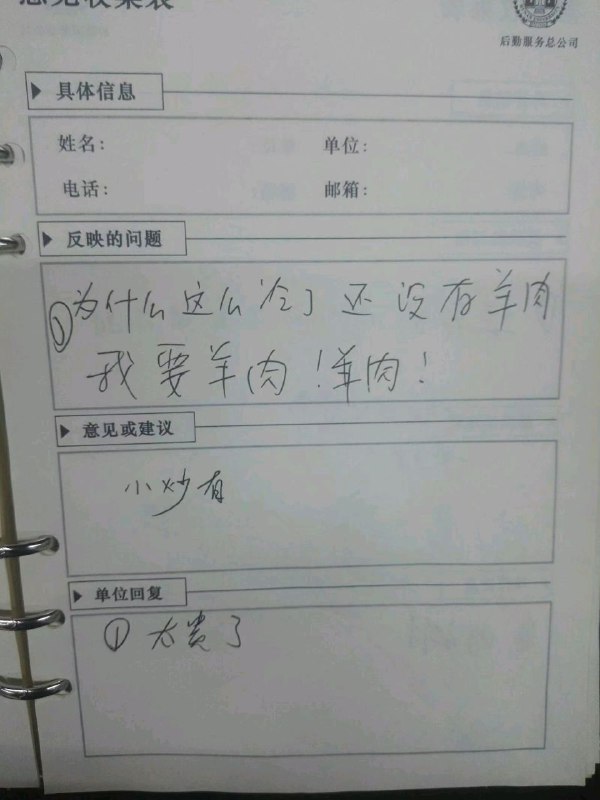 意见收集表
后勤服务总公司
具体信息
姓名： 单位：
电话： 邮箱：
反映的问题
①为什么这么冷了还没有羊肉
我要羊肉！羊肉！
意见或建议
小炒有
单位回复
① 太贵了